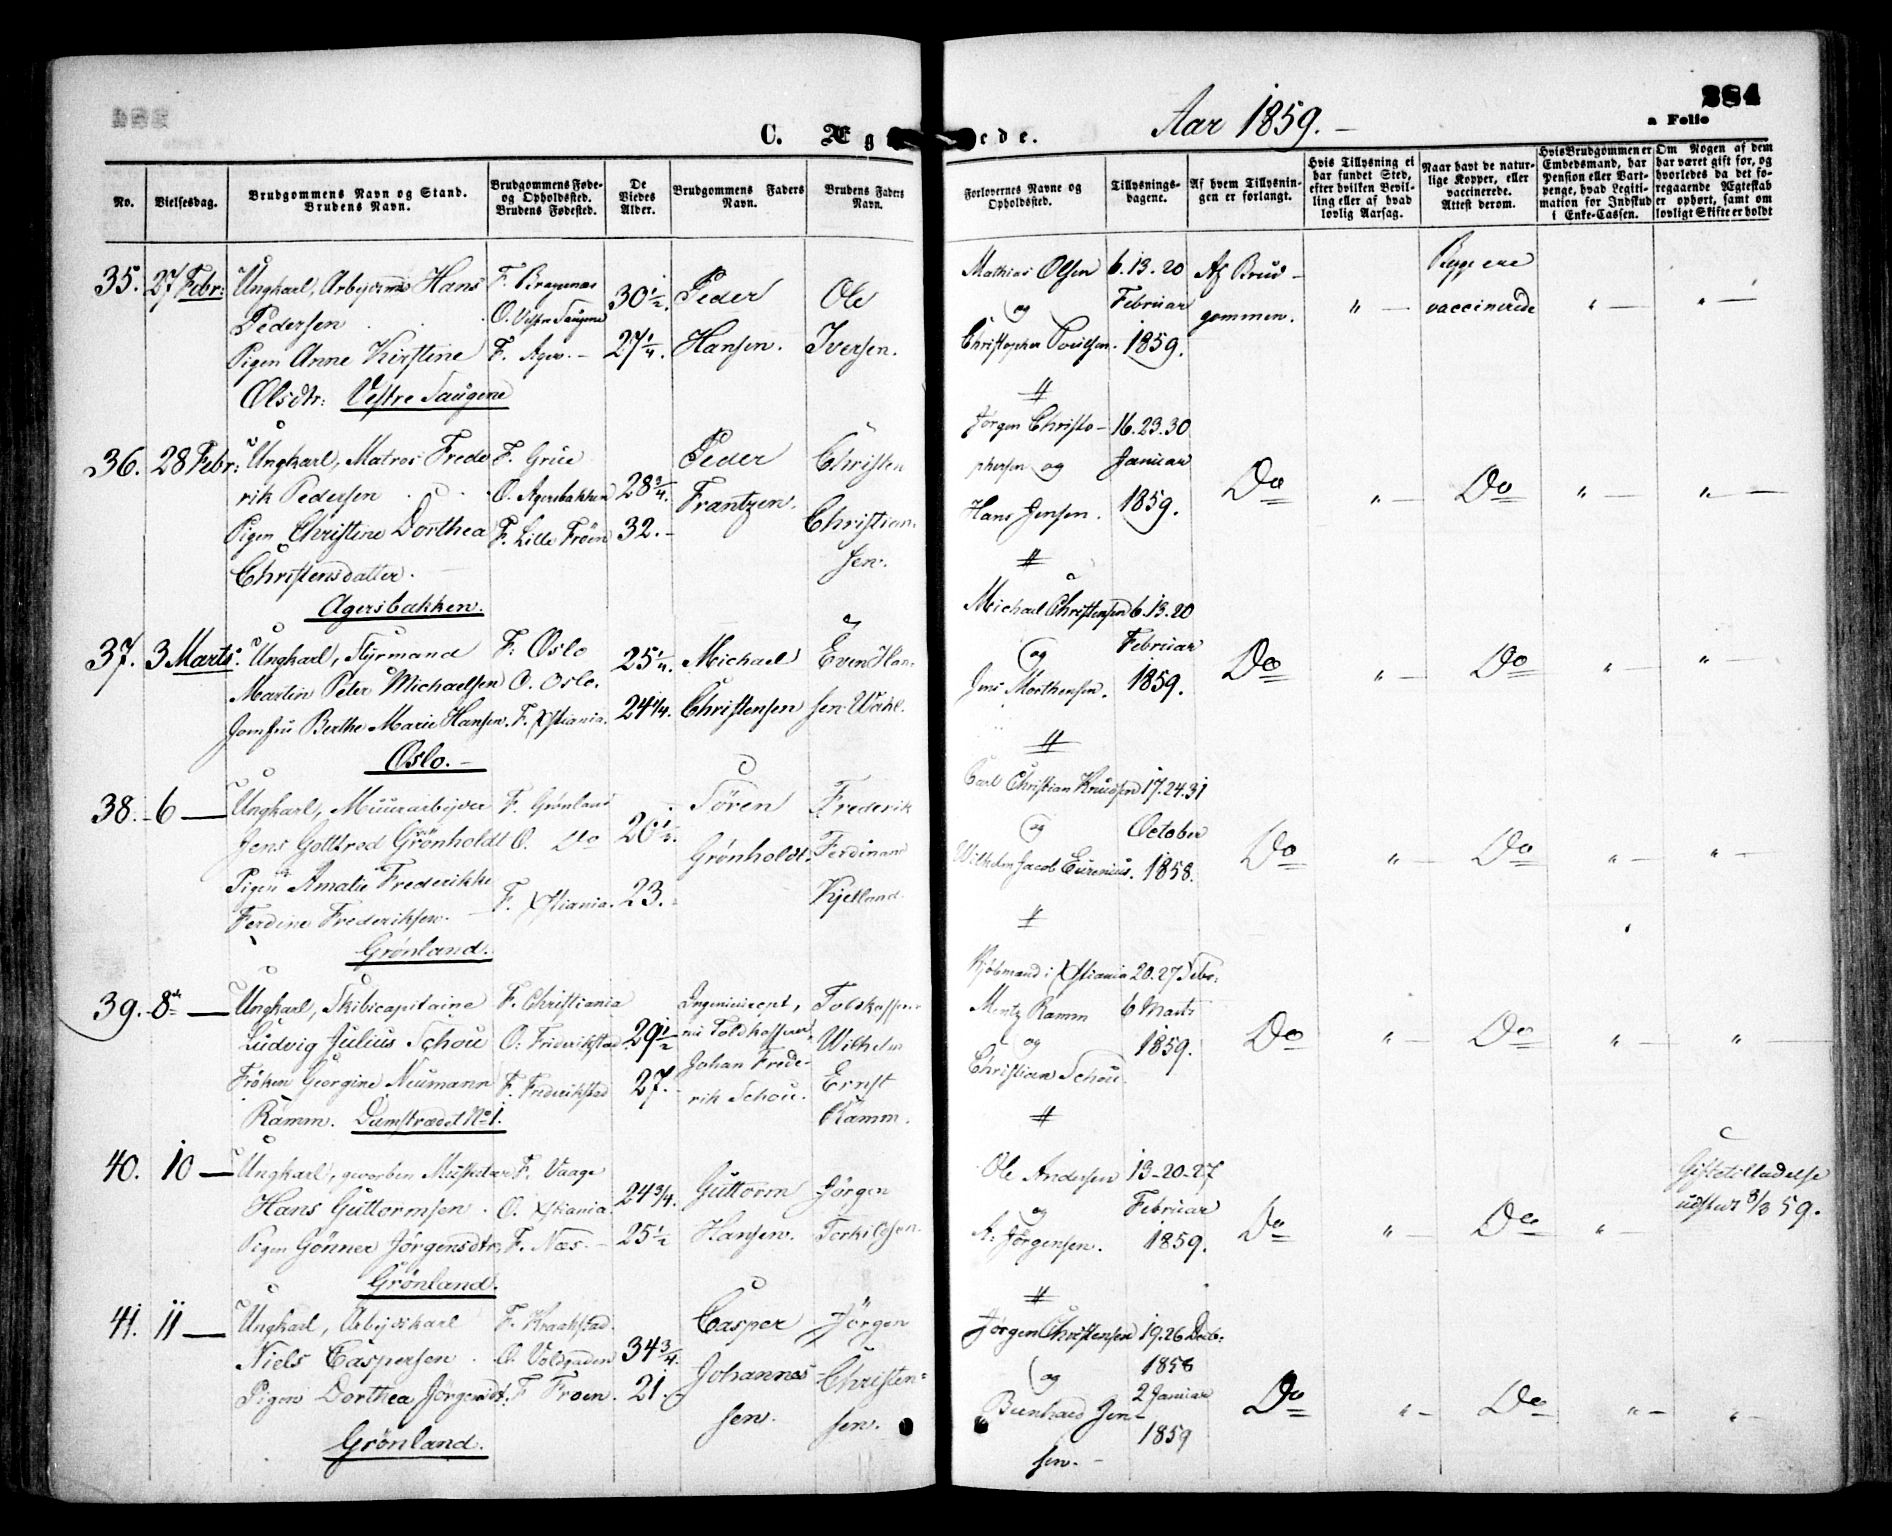 C. Ægteviede.
Aar 1859.
384
a Folio
No.
Vielsesdag.
Brudgommens Navn og Stand.
Brudens Navn.
Brudgommens Føde-
og Opholdssted.
Brudens Fødested.
De
Viedes
Alder.
Brudgommens Faders
Navn.
Brudens Faders
Navn.
Forlovernes Navne og
Opholdssted.
Tillysnings-
dagene.
Af hvem Tillysnin-
gen er forlangt.
Hvis Tillysning ei
har fundet Sted,
efter hvilken Bevil-
ling eller af hvad
lovlig Aarsag.
Naar havt de natur-
lige Kopper, eller
vaccinerede.
Attest derom.
Hvis Brudgommen er
Embedsmand, har
Pension eller Vart-
penge, hvad Legiti-
mation for Indskud
i Enke-Cassen.
Om Nogen af dem
har været gift før, og
hvorledes da det fo-
regaaende Ægteskab
er ophørt, samt om
lovligt Skifte er holdt
35. 27 Febr:
Ungkarl, Arbejdsmd Hans
Pedersen
Pigen Anne Kirstine
Olsdtr: Vestre Saugene
F. Bragenæs
O. Vestre Saugene
F. Ager. –
30 1/2.
27 1/4.
Peder
Hansen.
Ole
Iversen.
Mathias Olsen
og
Christopher Poulsen.
6. 13. 20
Februar
1859.
Af Brud-
gommen.
" –
Begge ere
vaccinerede
" –
" –
36. 28 Febr:
Ungkarl, Matros Frede
rik Pedersen
Pigen Christine Dorthea
Christensdatter.
Agersbakken.
F. Grue
O. Agersbakken
F. Lille Frøen
28 3/4.
32. –
Peder
Frantzen.
Christen
Christian-
sen.
Jørgen Christo-
phersen og
Hans Jensen.
16. 23. 30
Januar
1859.
Do
" –
Do
" –
" –
37. 3 Marts:
Ungkarl, Styrmand
Martin Peter Michaelsen
Jomfru Berthe Marie Hansen.
Oslo. –
F. Oslo
O. Oslo.
F. Xstiania.
25 1/4.
24 1/4.
Michael
Christensen
Even Han-
sen Wahl.
Michael Christensen
og
Jens Morthensen.
6. 13. 20
Februar
1859.
Do
" –
Do
" –
" –
38. 6 –
Ungkarl, Muurarbejder
Jens Gottfred Grönholdt
Pigen Amalie Frederikke
Ferdine Frederiksen.
Grönland.
F. Grønland
O. Do
F. Xstiania.
20 1/2.
23.
Søren
Grønholdt.
Frederik
Ferdinand
Kjelland.
Carl Christian Knudsen
og
Wilhelm Jacob Eurenius.
17. 24. 31
October
1858.
Do
" –
Do
" –
" –
39. 8de –
Ungkarl, Skibscapitaine
Ludvig Julius Schou
Frøken Georgine Neumann
Ramm. Damstrædet No 1.
F. Christiania
O. Frederikstad
F. Frederikstad
29 1/2
27. –
Johan Frede-
rik Schou.
Wilhelm
Ernst
Ramm.
Kjøbmand i Xstiania
Mentz Ramm
og
Christian Schou.
20. 27 Febr:
6 Marts
1859.
Do
" –
Do
" –
"
40. 10 –
Ungkarl, gevorben Musketeer
Hans Guttormsen
Pigen Gönner Jörgensdtr.
Grönland.
F. Vaage
O. Xstiania.
F. Næs. –
24 3/4.
25 1/2
Guttorm
Hansen.
Jörgen
Torkildsen.
Ole Andersen
og
A. Jørgensen.
13–20–27
Februar
1859.
Do
"
Do
" –
Giftetilladelse
udstedt 8/3 59.
41. 11 –
Ungkarl, Arbejdskarl
Niels Caspersen
Pigen Dorthea Jörgensdt.
Grönland.
F. Kraakstad.
O. Voldgaden
F. Froen.
34 3/4.
21.
Casper
Johannes-
sen.
Jörgen
Christen-
sen.
Jørgen Christensen
og
Bernhard Jen-
sen. –
19. 26 Decb:
1858
2 Januar
1859
Do
" –
Do
" –
" –